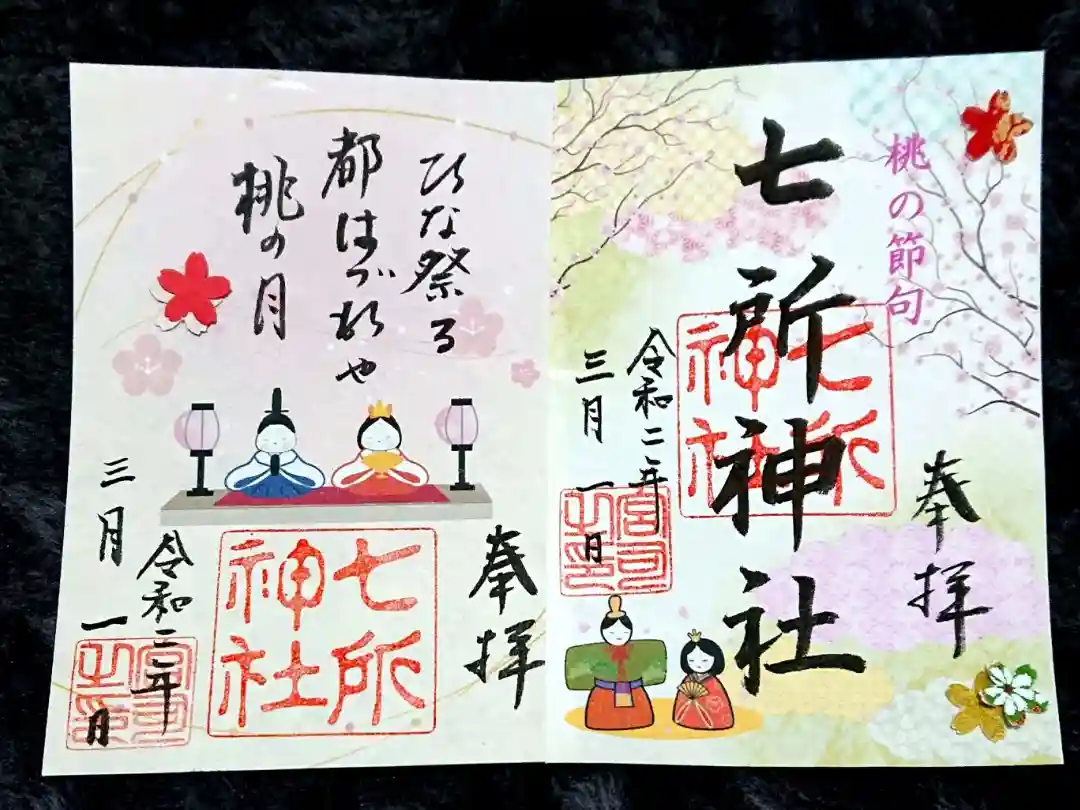 桃の節句
奉拝
七所神社
七所神社
令和二年
三月一日
宮司之印
ひな祭る
都はづれや
桃の月
奉拝
七所神社
令和二年
三月一日
宮司之印